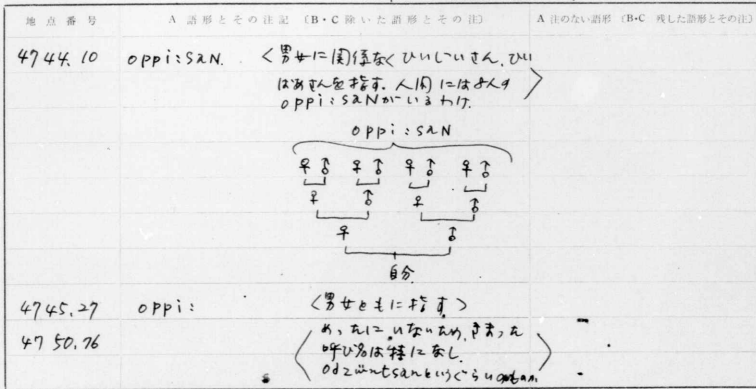 地点番号 A 語形とその注記 (B・C 除いた語形とその注) A 注のない語形 (B・C 残した語形とその注)
4744.10 oppi:saN. 〈男女に関係なくひいじいさん、ひい
ばあさんを指す。人間には8人の
oppi:saNがいるわけ。〉
oppi:saN
♀ ♂ ♀ ♂ ♀ ♂ ♀ ♂
♀ ♂ ♀ ♂
♀ ♂
自分
4745.27 oppi: 〈男女ともに指す〉
4750.76 〈めったにいないため、きまった
呼び名は特になし。
というぐらい